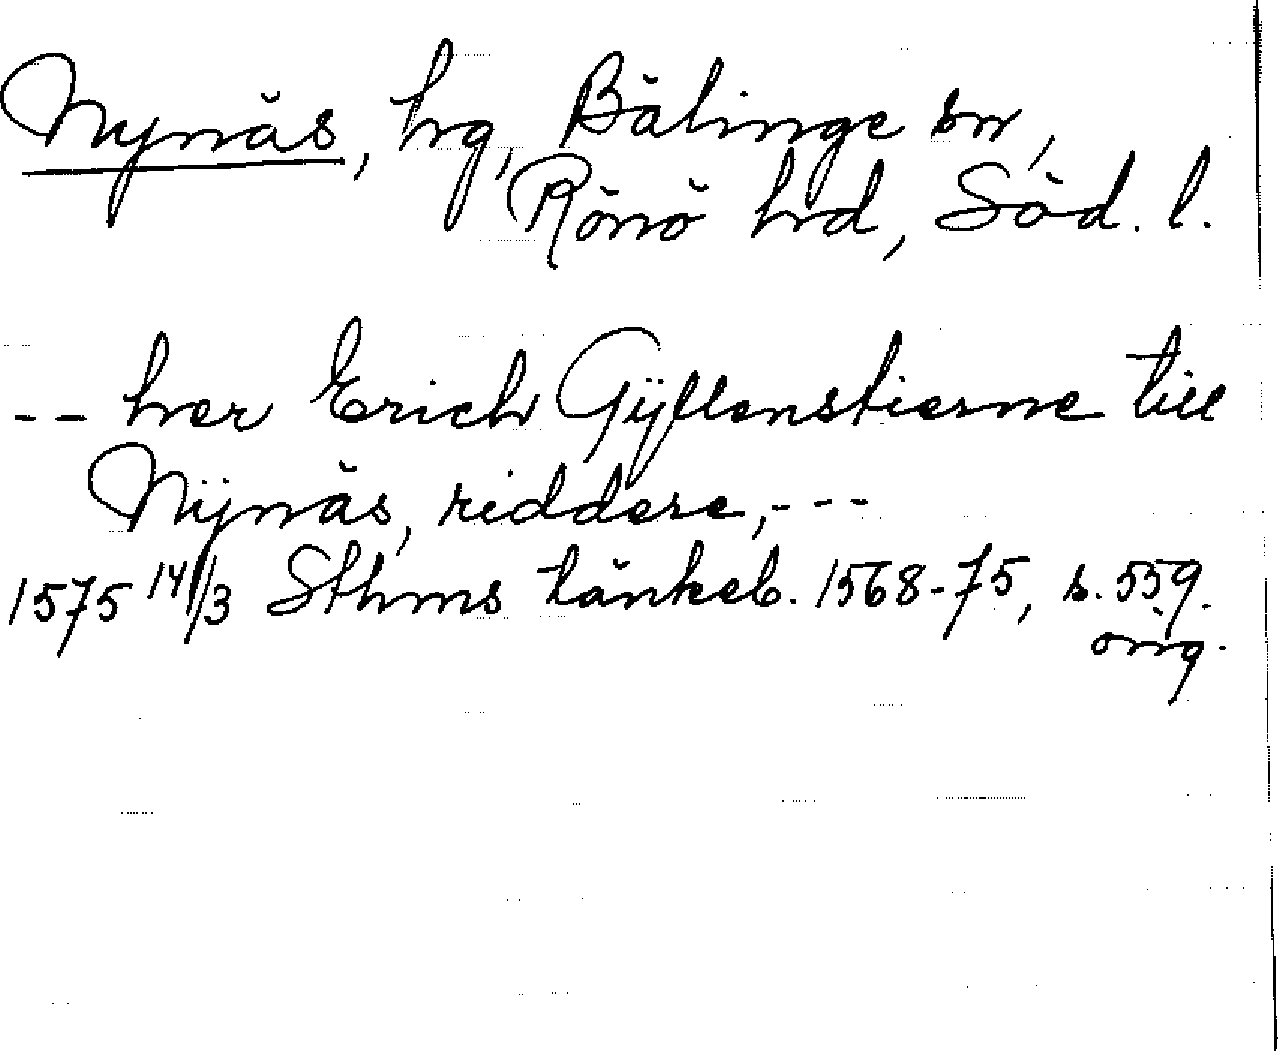 Nynäs, hg, Bälinge sn,
Rönö hd, Söd. l.
-- her Erich Gÿllenstierne till
Nÿnäs, riddere, ---
1575 14/3 Sthms tänkeb. 1568-75, s. 559.
orig.